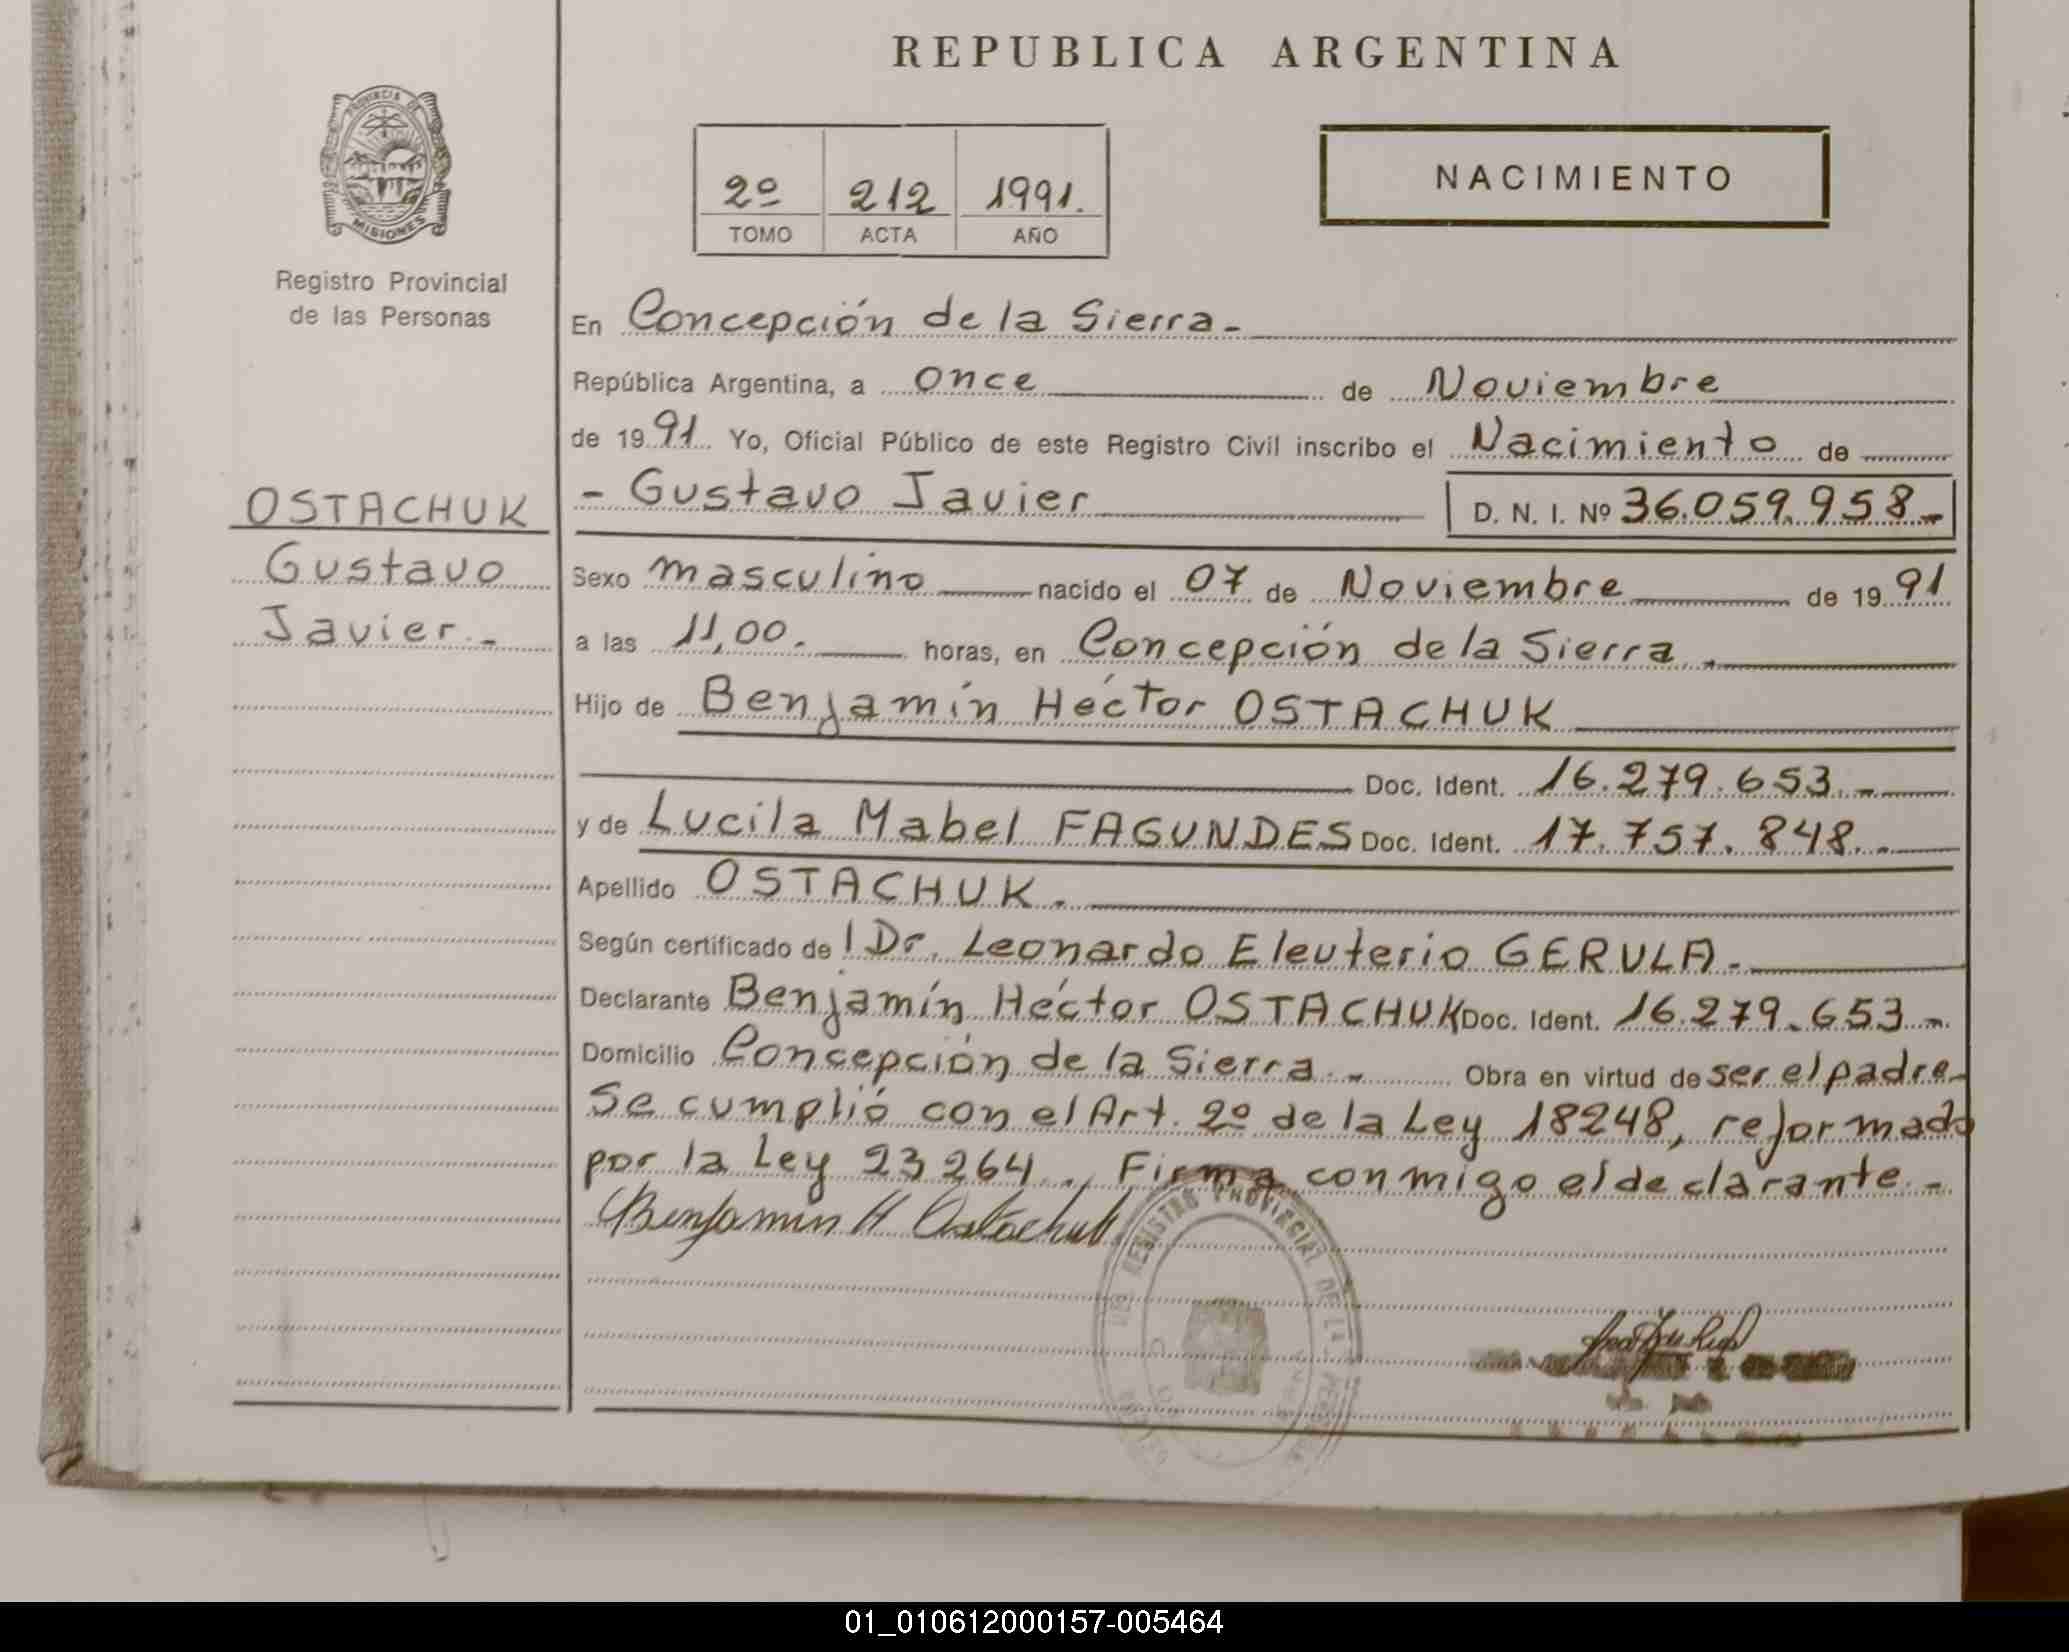 REPUBLICA ARGENTINA
PROVINCIA DE
MISIONES
Registro Provincial
de las Personas
2º 212 1991.
TOMO ACTA AÑO
NACIMIENTO
En Concepción de la Sierra.-
República Argentina, a once de Noviembre
de 1991 Yo, Oficial Público de este Registro Civil inscribo el Nacimiento de
- Gustavo Javier
D. N. I. Nº 36.059.958-
OSTACHUK
Gustavo
Javier.-
Sexo masculino nacido el 07 de Noviembre de 1991
a las 11,00. horas, en Concepción de la Sierra.
Hijo de Benjamín Héctor OSTACHUK
Doc. Ident. 16.279.653.-
y de Lucila Mabel FAGUNDES Doc. Ident. 17.757.848.-
Apellido OSTACHUK.
Según certificado del Dr. Leonardo Eleuterio GERULA.-
Declarante Benjamín Héctor OSTACHUK Doc. Ident. 16.279.653.-
Domicilio Concepción de la Sierra.- Obra en virtud de ser el padre-
Se cumplió con el Art. 2º de la Ley 18248, reformado
por la Ley 23264.. Firma conmigo el declarante.-
Benjamin H Ostachuk
REGISTRO PROVINCIAL DE LAS
01_010612000157-005464